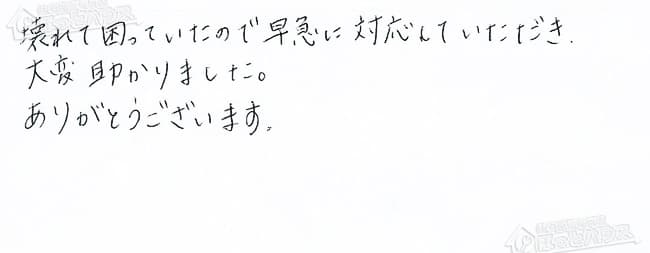 壊れて困っていたので早急に対応んていただき.
大変助かりました。
ありがとうございます。